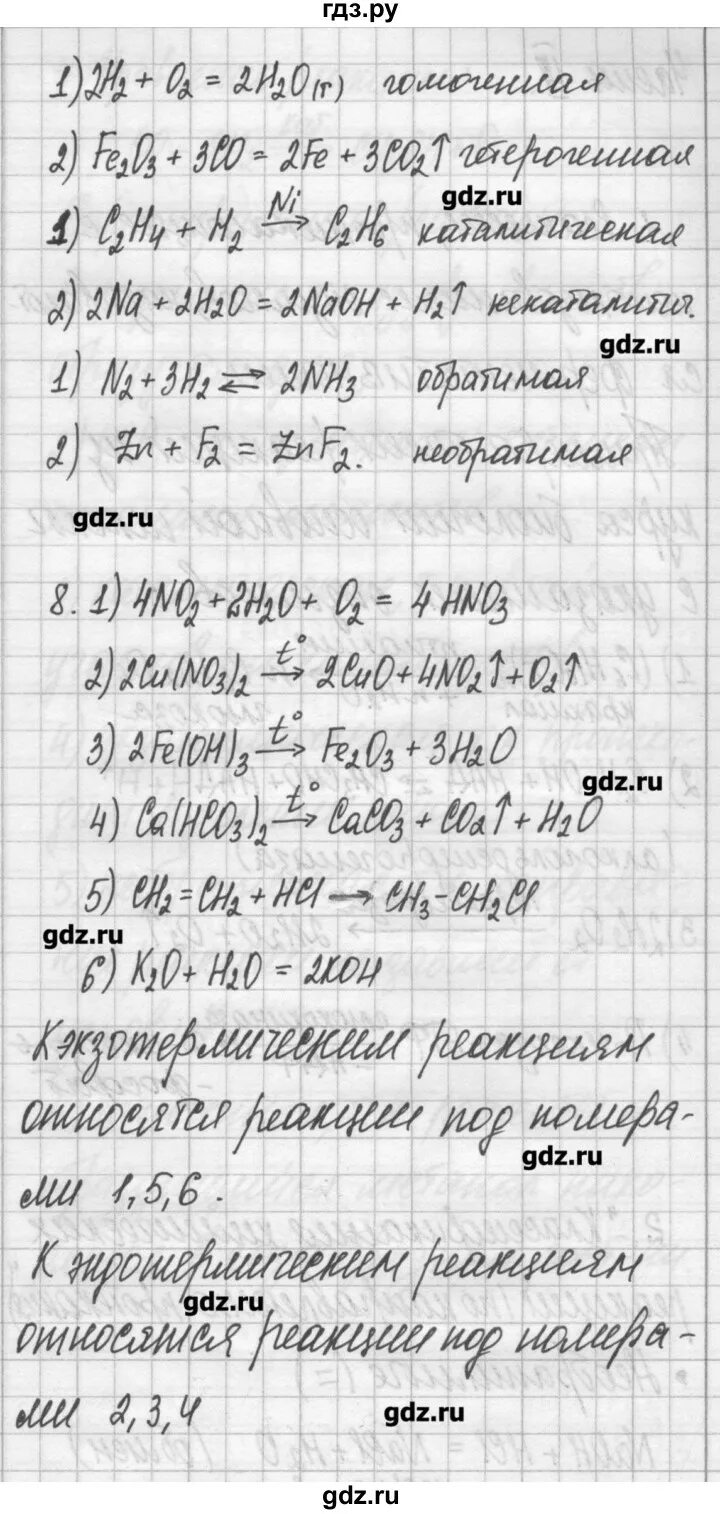 гдз.ру
1) 2H₂ + O₂ = 2H₂O(г) гомогенная
2) Fe₂O₃ + 3CO = 2Fe + 3CO₂↑ гетерогенная
gdz.ru
1) C₂H₄ + H₂ —Ni→ C₂H₆ каталитическая
2) 2Na + 2H₂O = 2NaOH + H₂↑ некаталитич.
gdz.ru
1) N₂ + 3H₂ ⇄ 2NH₃ обратимая
2) Zn + F₂ = ZnF₂. необратимая
gdz.ru
8. 1) 4NO₂ + 2H₂O + O₂ = 4HNO₃
2) 2Cu(NO₃)₂ —t°→ 2CuO + 4NO₂↑ + O₂↑
3) 2Fe(OH)₃ —t°→ Fe₂O₃ + 3H₂O
gdz.ru
4) Ca(HCO₃)₂ —t°→ CaCO₃ + CO₂↑ + H₂O
5) CH₂=CH₂ + HCl → CH₃-CH₂Cl
gdz.ru
6) K₂O + H₂O = 2KOH
К экзотермическим реакциям
относятся реакции под номера-
gdz.ru
ми 1,5,6.
К эндотермическим реакциям
gdz.ru
относятся реакции под номера-
ми 2,3,4
gdz.ru
gdz.ru